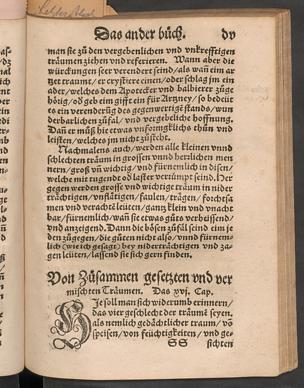 Das ander büch. dv
man sie zů den vergebenlichen vnd vnkrefftigen
träumen ziehen vnd referieren. Wann aber die
würckungen seer verendert seind/als wañ eim ar
tzet traumt/er crystiere einen/oder schlag jm ein
ader/welches dem Apotecker vnd balbierer züge
hörig/od' geb ein gifft ein für Artzney/so bedeüt
es ein verenderung des gegenwertigẽ stands/wun
derbarlichen zůfal/vnd vergebeliche hoffnung.
Dañ er můß hie etwas vnformgklichs thůn vnd
leisten/welches jm nicht zůsteht.
Nachmalens auch/werden alle kleinen vnnd
schlechten träum in grossen vnnd herrlichen men
nern/groß vñ wichtig/vnd fürnemlich in disen/
welche mit tugendt od' laster verrümpt seind. Her
gegen werden grosse vnd wichtige träum in nider
trächtigen/vnflätigen/faulen/trägen/forchtsa
men vnd veracht leüten/gantz klein vnd vnacht
bar/fürnemlich/wañ sie etwas gůts verheissend/
vnd anzeigend. Dann die bösen zůfäl seind eim je
den zůgegen/die gůten nicht also/vnnd fürnem-
lich (wie ich gesagt) bey nidertrachtigen vnd za-
gen leüten/lassend sie sich gern finden.
Von Zůsammen gesetzten vnd ver
mischten Träumen. Das xvj. Cap.
HIe soll man sich widerumb erinnern/
das vier geschlecht der träumẽ seyen,
als nemlich gedächtlicher traum/võ
speisen/von feüchtigkeiten/vnd ge-
SS sichten